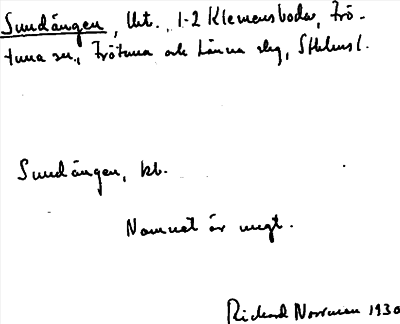 Sundängen, Utt., 1-2 Klemensboda, Frö-
tuna sn., Frötuna och Länna skg, Sthlms l.
Sundängen, kb.
Namnet är ungt.
Richard Norrman 1930